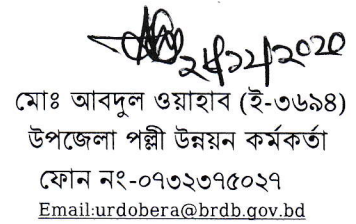 ২৪/১২/২০২০
মোঃ আবদুল ওয়াহাব (ই-৩৬৯৪)
উপজেলা পল্লী উন্নয়ন কর্মকর্তা
ফোন নং-০৭৩২৩৭৫০২৭
Email:urdobera@brdb.gov.bd